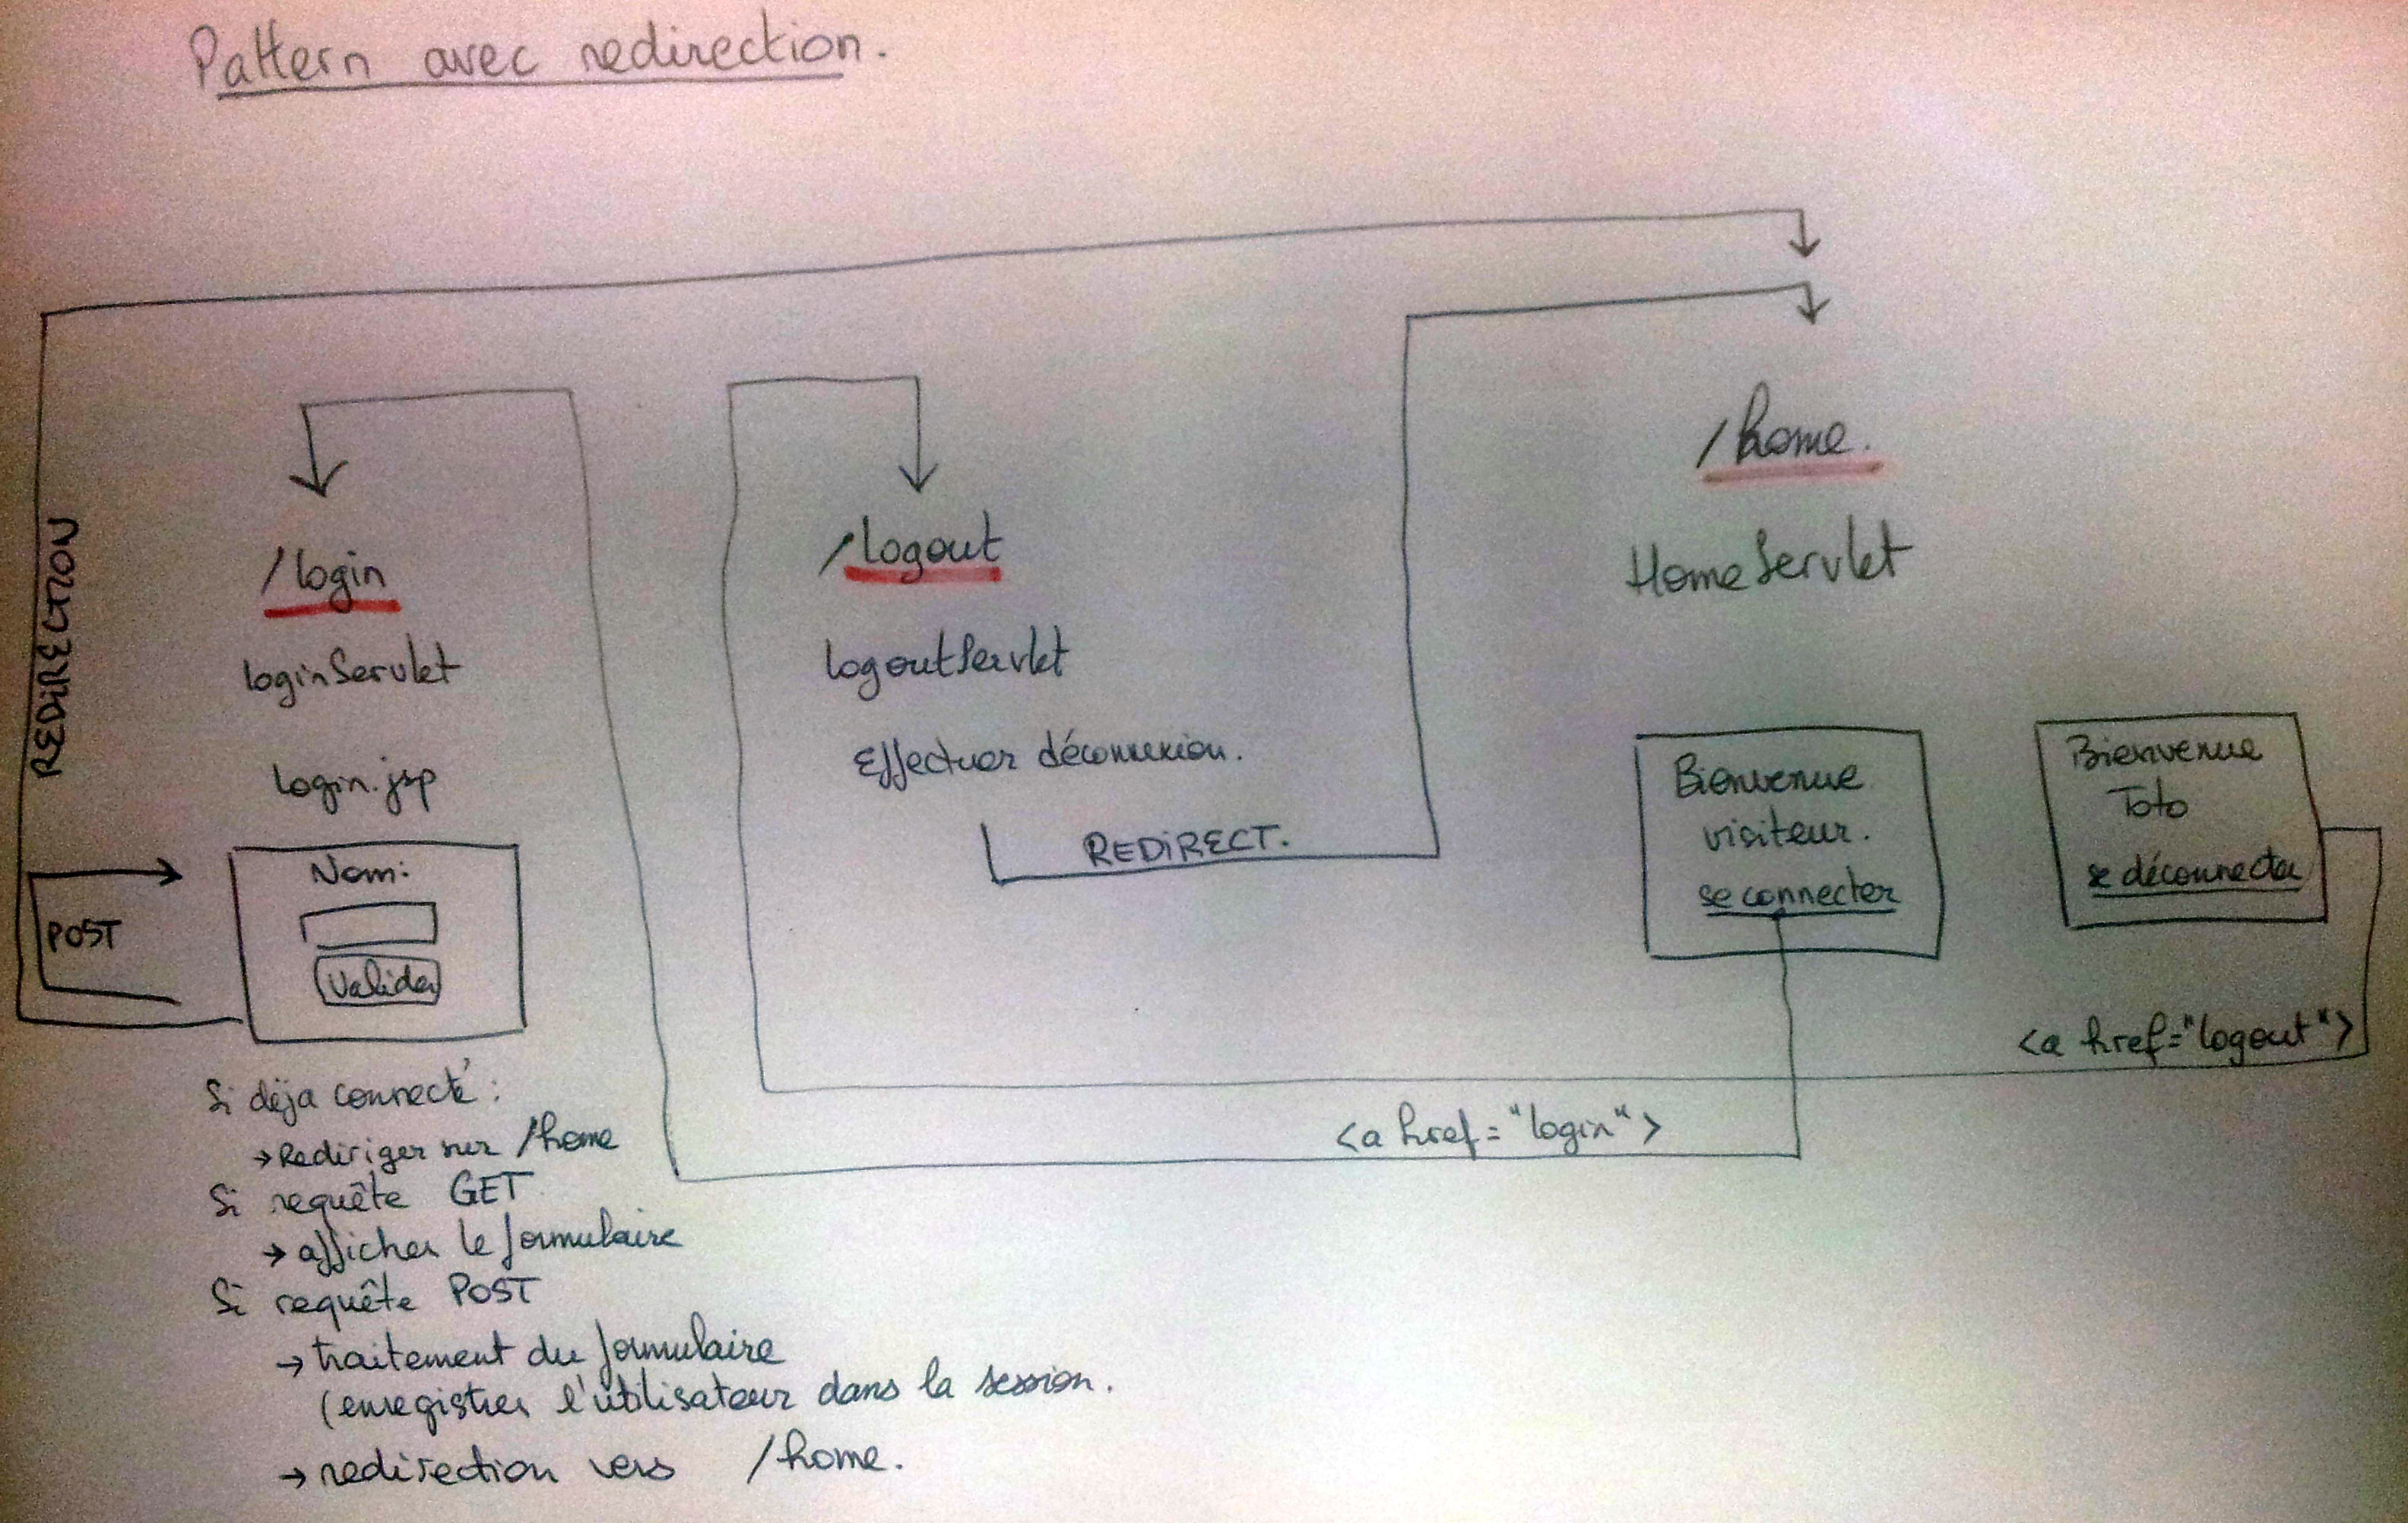 Pattern avec redirection.
REDIRECTION
/login
loginServlet
login.jsp
POST
Nom:
Valider
Si déja connecté :
→ Rediriger sur /home
Si requête GET
→ afficher le formulaire
Si requête POST
→ traitement du formulaire
(enregistrer l'utilisateur dans la session.
→ redirection vers /home.
/logout
logoutServlet
Effectuer déconnexion.
REDIRECT.
/home.
HomeServlet
Bienvenue
visiteur.
se connecter
<a href="login">
Bienvenue
Toto
se déconnecter
<a href="logout">